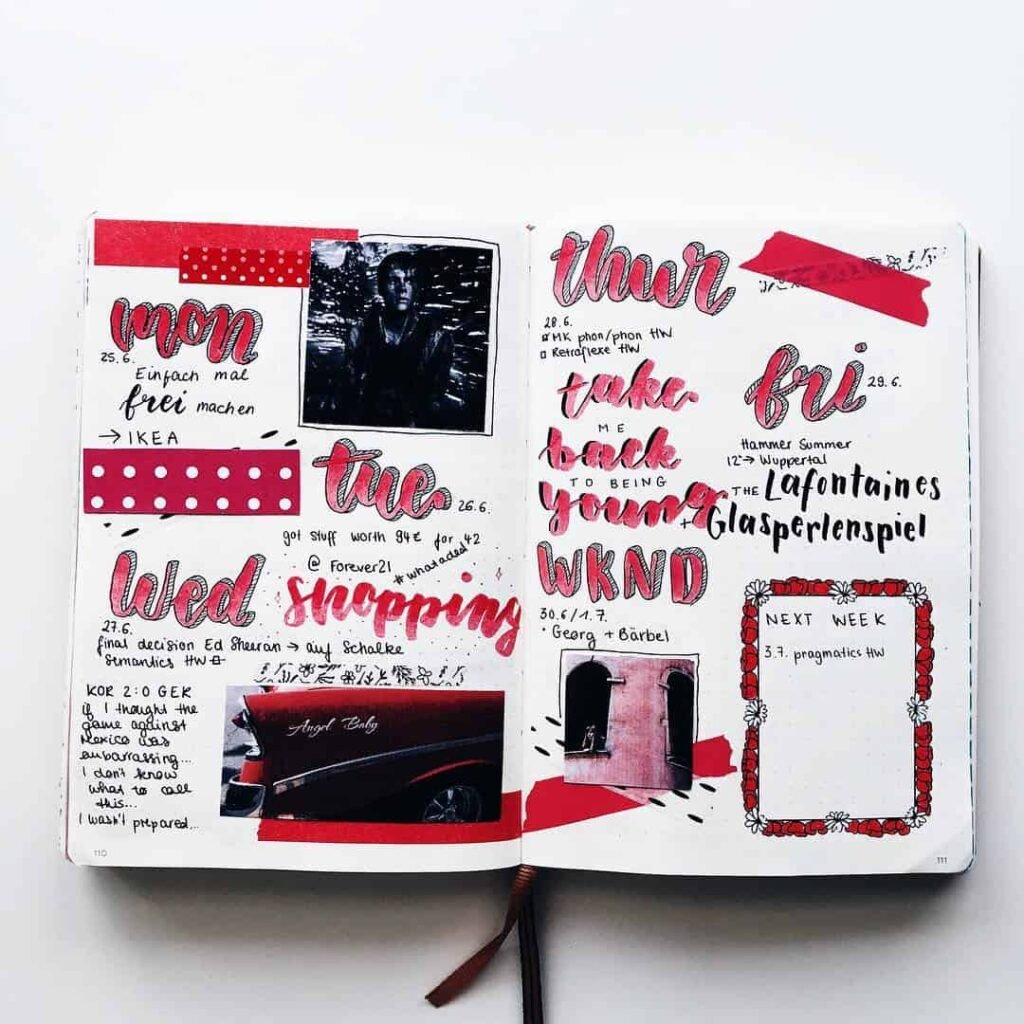 mon
25.6.
Einfach mal
frei machen
→ IKEA
tue
26.6.
got stuff worth 94€ for 42
@ Forever21
#whatadeal
shopping
Wed
27.6.
final decision Ed Sheeran → auf Schalke
Semantics HW
KOR 2:0 GER
if I thought the
game against
Mexico was
embarrassing...
I don't know
what to call
this...
I wasn't prepared...
Angel Baby
110
thur
28.6.
MK phon/phon HW
Retroflexe HW
take
ME
back
TO BEING
young
fri
29.6.
Hammer Summer
12 → Wuppertal
THE Lafontaines
+ Glasperlenspiel
WKND
30.6/1.7.
Georg + Bärbel
NEXT WEEK
3.7. pragmatics HW
111